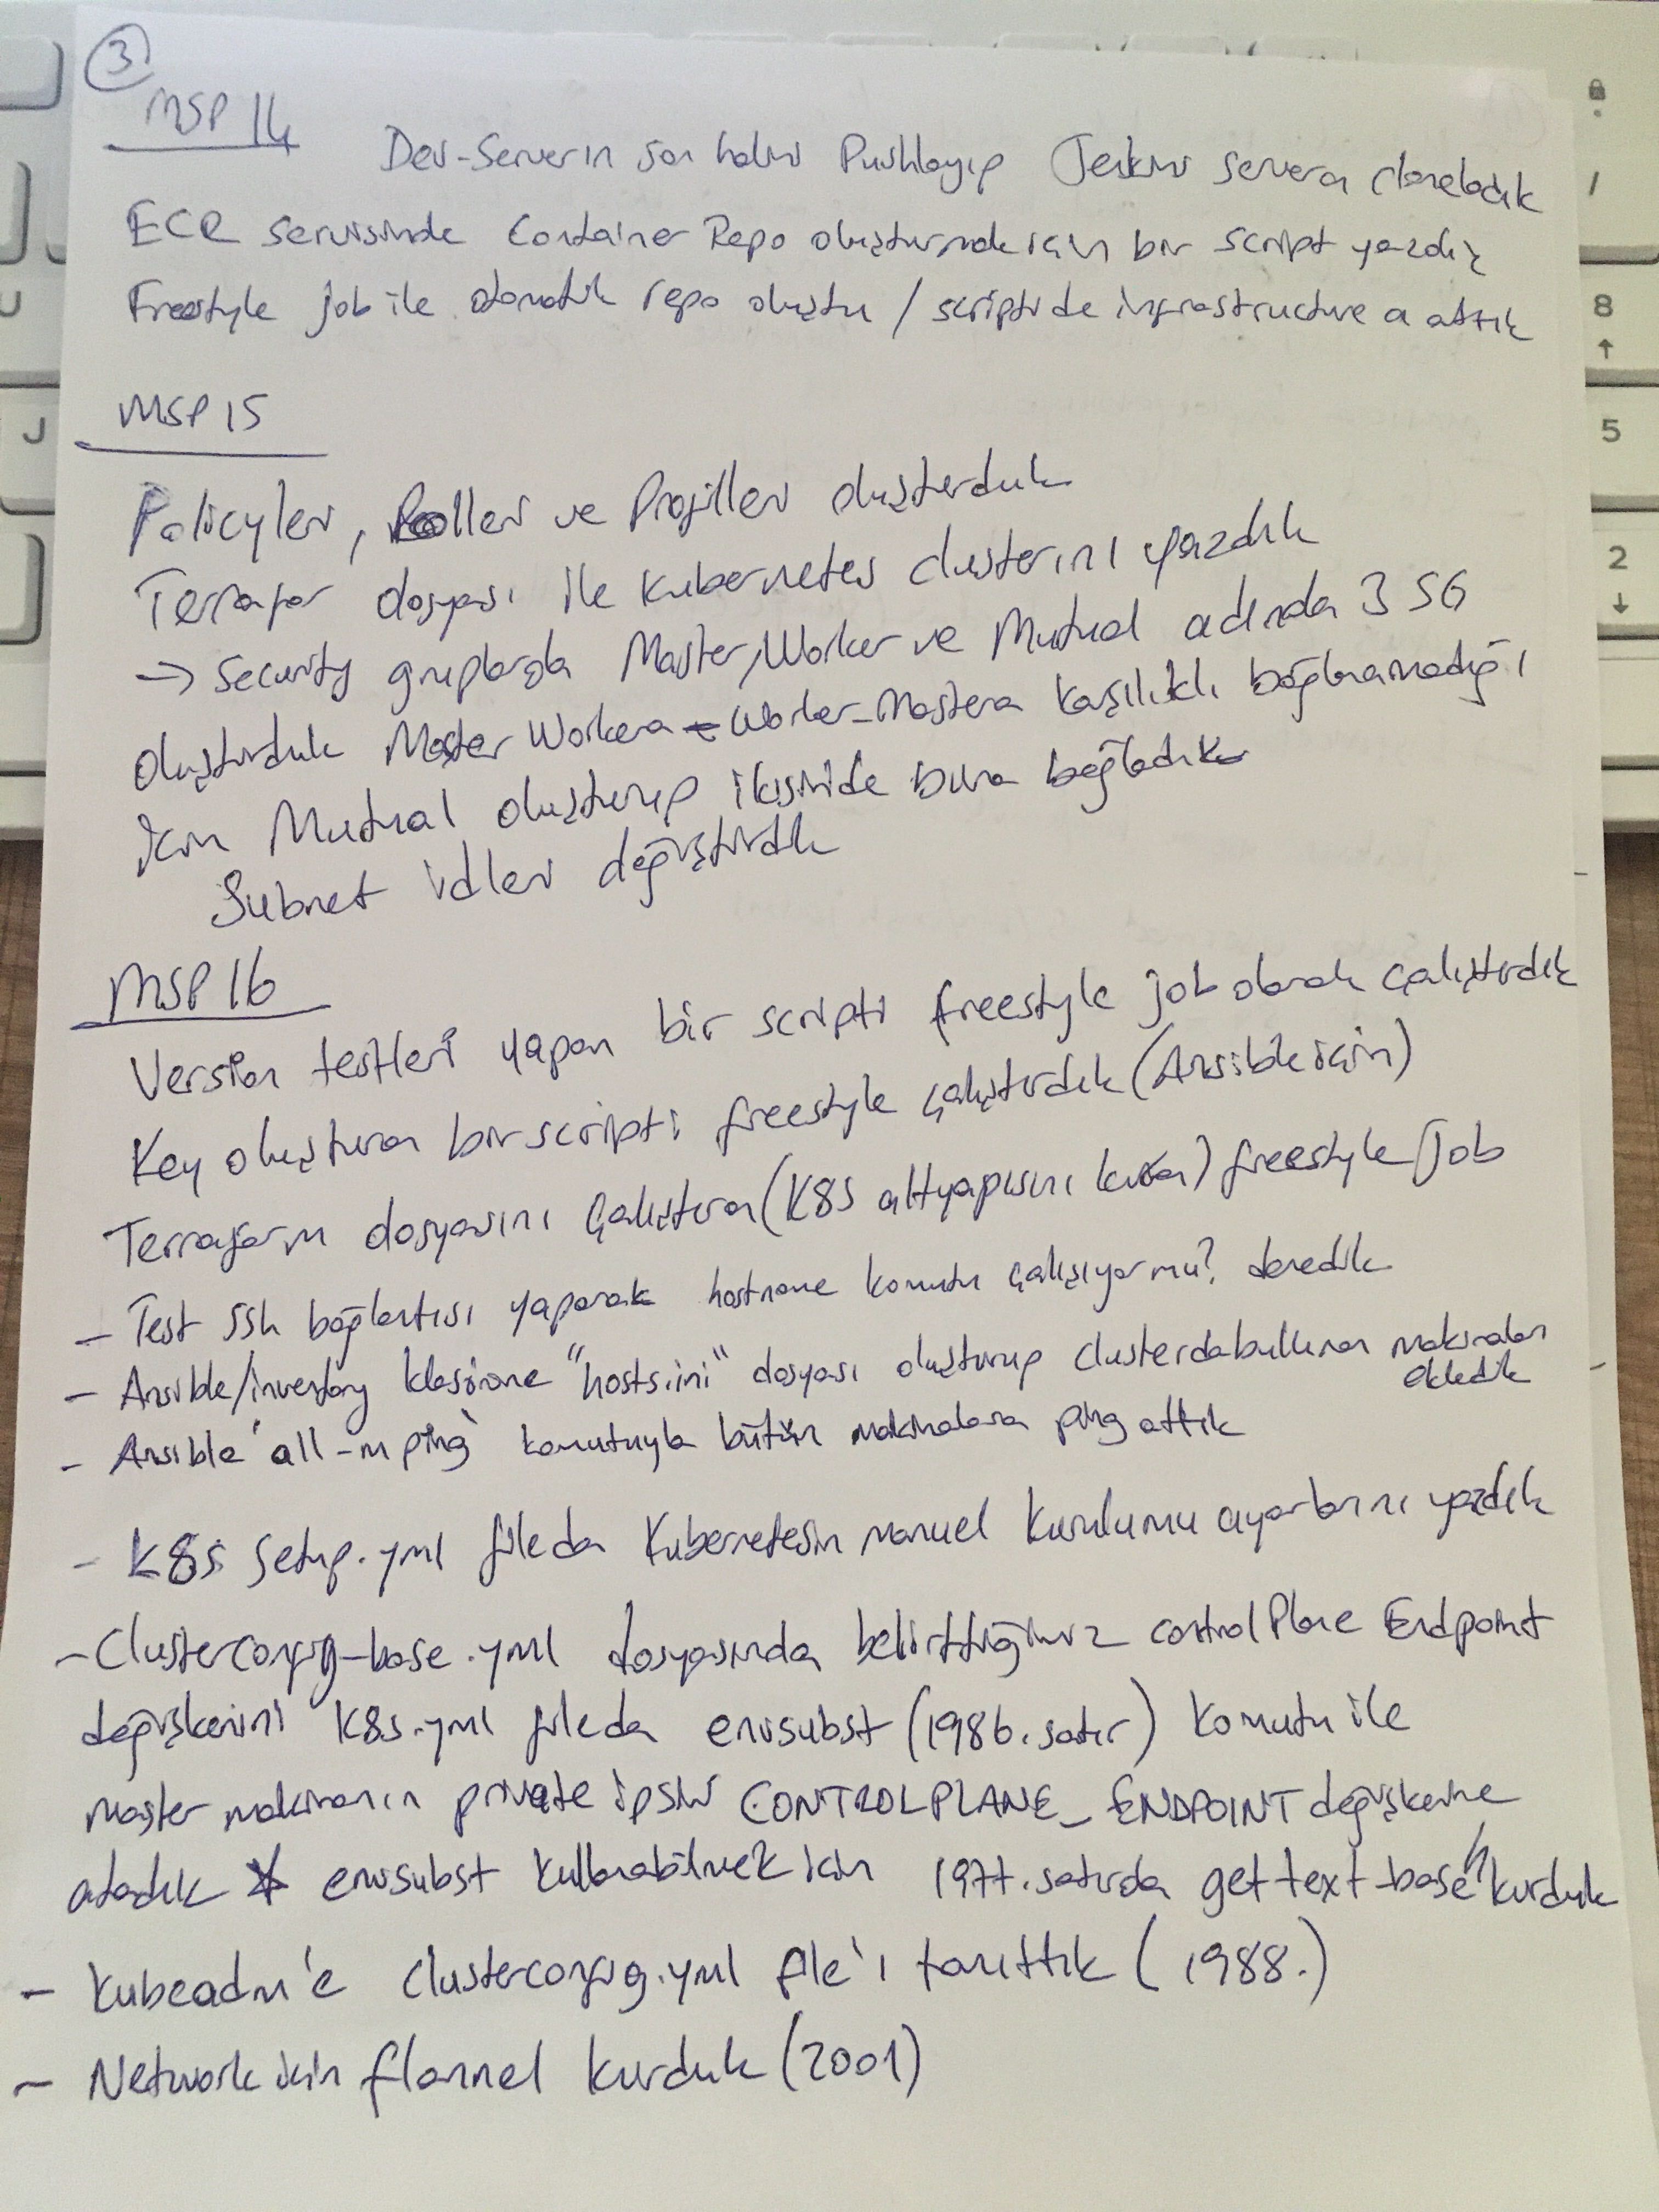 3
MSP 14
Dev-Serverın son halini Pushlayıp Jenkins servera cloneladık
ECR servisinde Container Repo oluşturmak için bir script yazdık
Freestyle job ile otomatik repo oluştu / scripti de infrastructure a attık
MSP 15
Policyler, Roller ve Profiller oluşturduk
Terrafor dosyası ile Kubernetes clusterını yazdık
→ Security gruplarda Master, Worker ve Mutual adında 3 SG
oluşturduk Master Workera - Worker-Mastera karşılıklı bağlanamadığı
için Mutual oluşturup ikisinide buna bağladık
Subnet idleri değiştirdik
MSP 16
Version testleri yapan bir scripti freestyle job olarak çalıştırdık
Key oluşturan bir scripti freestyle çalıştırdık (Ansible için)
Terraform dosyasını çalıştıran (K8s altyapısını kuran) freestyle job
- Test ssh bağlantısı yaparak hostname komutu çalışıyormu? denedik
- Ansible/inventory klasörüne "hosts.ini" dosyası oluşturup clusterda bulunan makinaları
ekledik
- Ansible 'all -m ping' komutuyla bütün makinalara ping attık
- K8s setup.yml fileda Kubernetesin manuel kurulumu ayarlarını yazdık
- Clusterconfig-base.yml dosyasında belirttiğimiz controlPlane Endpoint
değişkenini K8s.yml fileda envsubst (1986.satır) komutu ile
master makinanın private ipsini CONTROLPLANE_ENDPOINT değişkenine
atadık * envsubst kullanabilmek için 1977.satırda gettext-base'i kurduk
- Kubeadm'e clusterconfig.yml file'ı tanıttık (1988.)
- Network için flannel kurduk (2001)
8
5
2
J
U